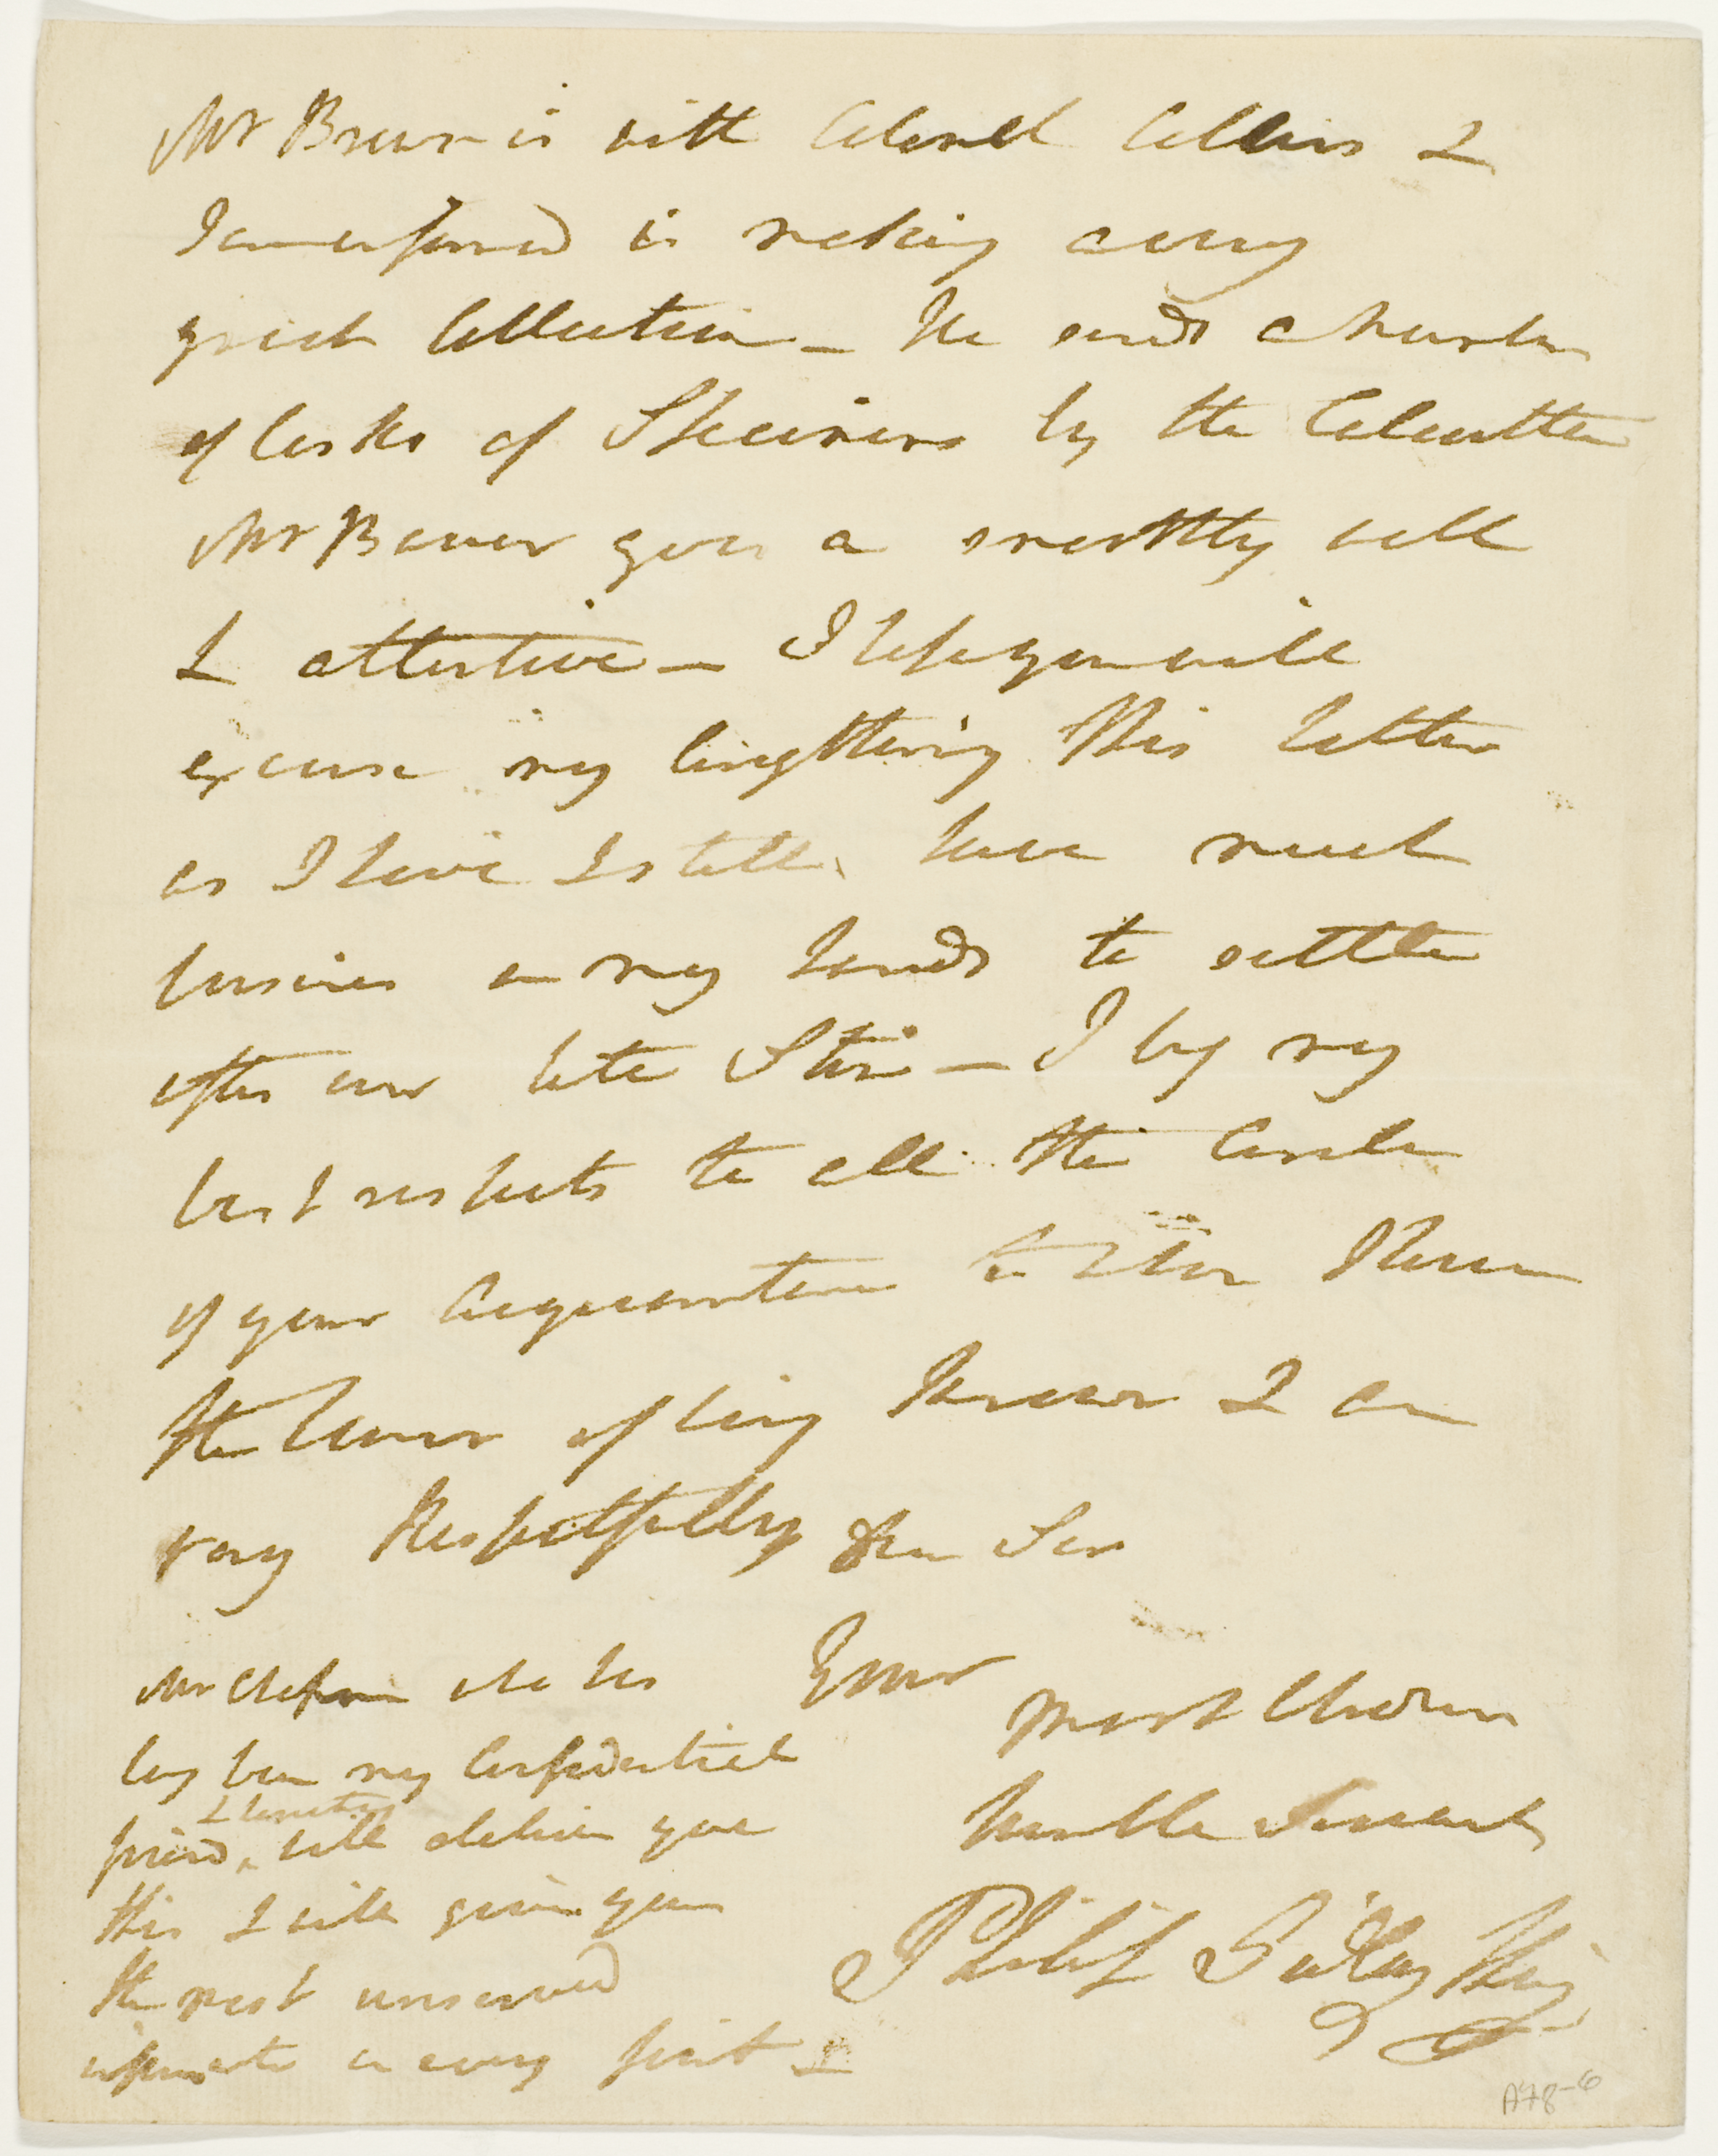 Mr Brown is with Colonel Collins &
I am informed is making a very
great Collection – He sends a Number
of Casks of Specimens by the Calcutta
Mr Bauer goes on monthly well
& attentive – I hope you will
excuse my lengthening this letter
as I have & still have much
business on my hands to settle
after our late Stir – I beg my
best respects to all the Circle
of your Acquaintance to whom I have
the honor of being known & am
very Respectfully Dear Sir
Your
Most Obedient
Humble Servant
Philip Gidley King
Mr Chapman who has
long been my Confidential
friend, will deliver you
& Secretary
this & will give you
the most unreserved
information on every point –
A78-6